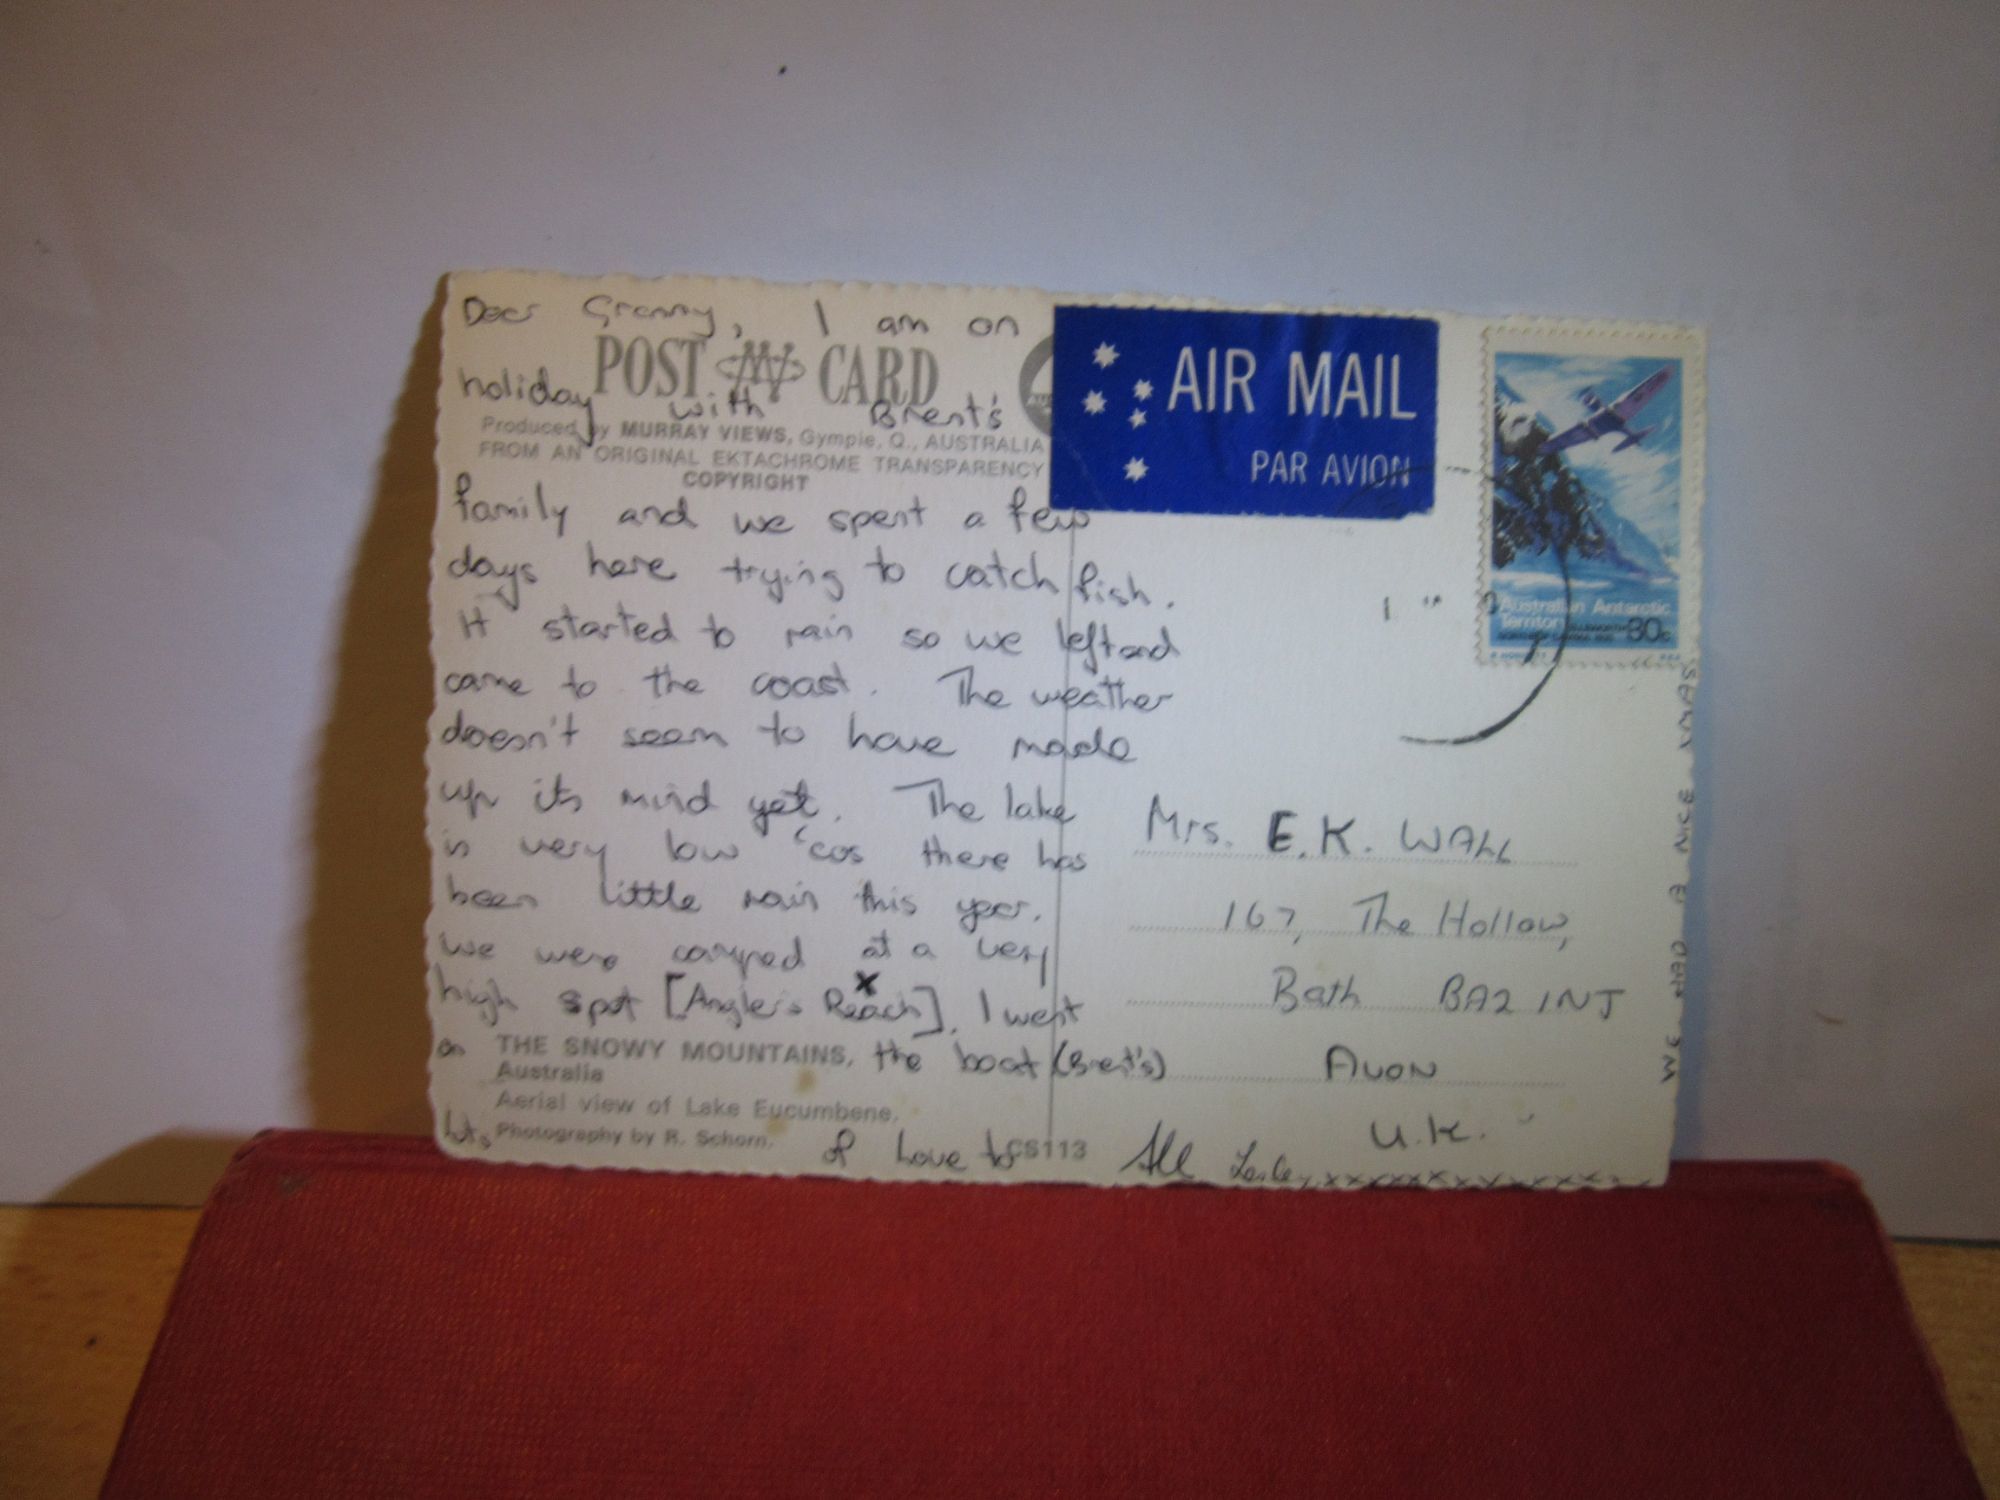 Dear Granny, I am on
POST CARD
holiday with Brent's
Produced by MURRAY VIEWS, Gympie, Q., AUSTRALIA
FROM AN ORIGINAL EKTACHROME TRANSPARENCY
COPYRIGHT
family and we spent a few
days here trying to catch fish.
It started to rain so we left and
came to the coast. The weather
doesn't seem to have made
up its mind yet. The lake
is very low 'cos there has
been little rain this year.
we were camped at a very
high spot [Angler's Reach]. I went
x
on the boat (Brent's)
THE SNOWY MOUNTAINS,
Australia
Aerial view of Lake Eucumbene.
Photography by R. Schorn.
lots of love to All Lesley xxxxxxxxxxxx
CS113
AIR MAIL
PAR AVION
Australian Antarctic
Territory
80c
Mrs. E.K. WALL
167, The Hollow,
Bath BA2 1NJ
AVON
U.K.
WE HAD A NICE XMAS